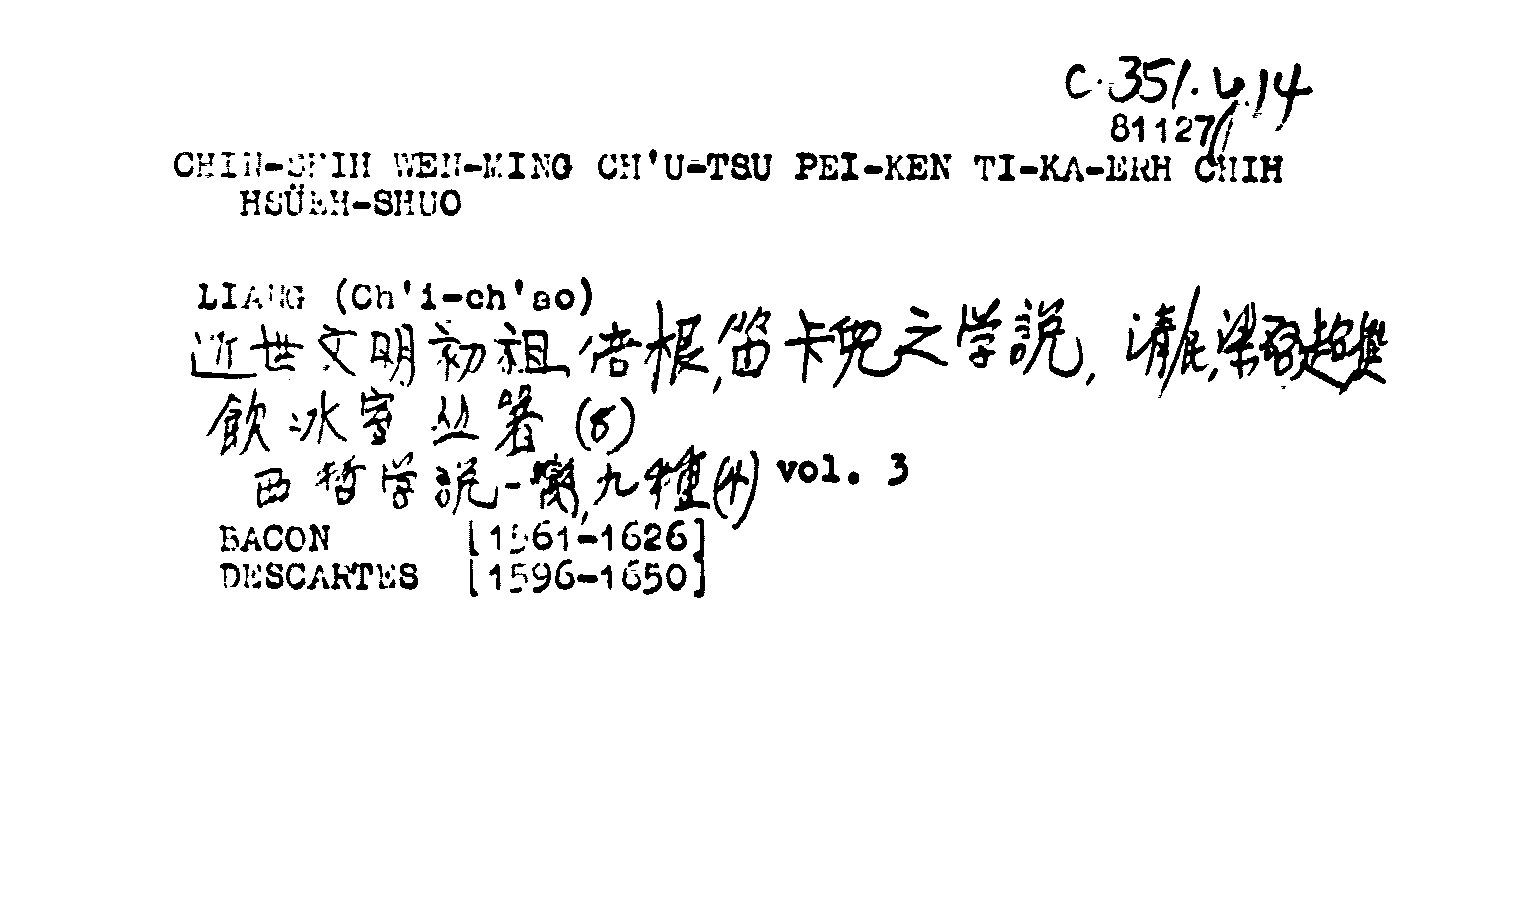 C.351.b.14
81127
CHIN-SHIH WEN-MING CH'U-TSU PEI-KEN TI-KA-ERH CHIH
HSÜEH-SHUO
LIANG (Ch'i-ch'ao)
近世文明初祖倍根,笛卡兒之学説, 清民,梁啓超撰
飲冰室丛著(8)
西哲学説一臠,九種 vol. 3
BACON [1561-1626]
DESCARTES [1596-1650]